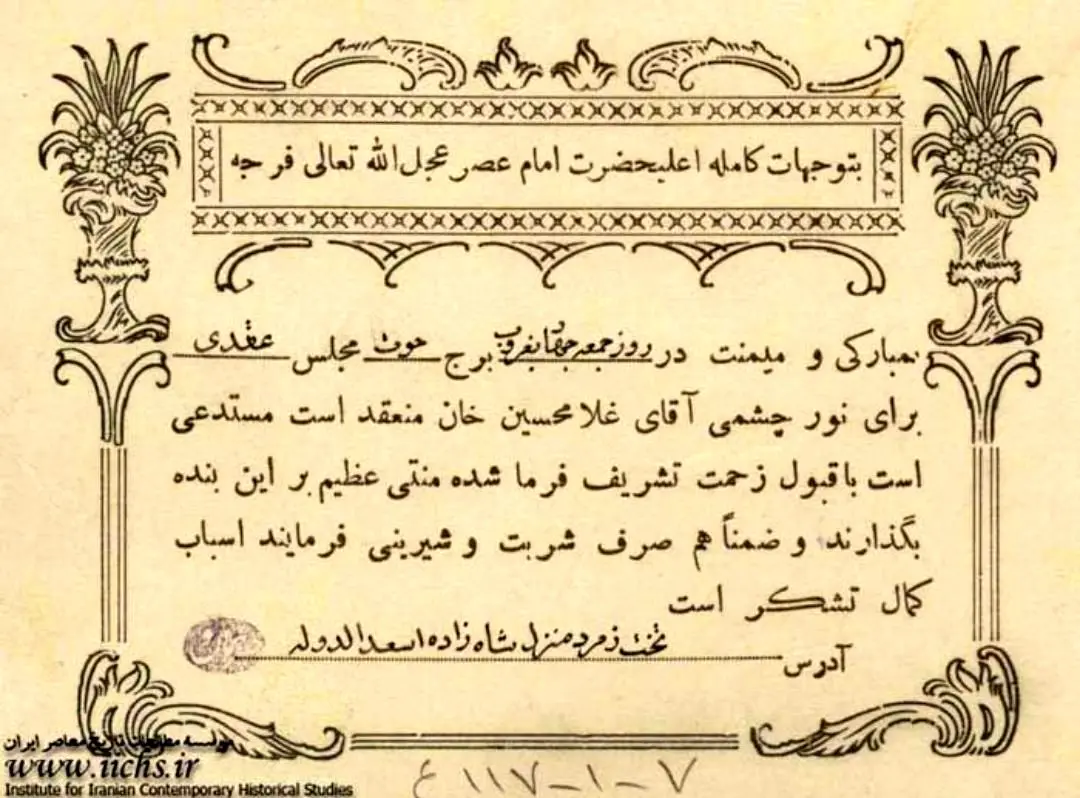 بتوجهات کامله اعلیحضرت امام عصر عجل الله تعالی فرجه
بمبارکی و میمنت در روز جمعه بغروب برج حوت مجلس عقدی
برای نور چشمی آقای غلامحسین خان منعقد است مستدعی
است باقبول زحمت تشریف فرما شده منتی عظیم بر این بنده
بگذارند و ضمناً هم صرف شربت و شیرینی فرمایند اسباب
کمال تشکر است
آدرس تخت زمرد منزل شاه زاده اسعدالدوله
موسسه مطالعات تاریخ معاصر ایران
www.iichs.ir
Institute for Iranian Contemporary Historical Studies
۷-۱-۱۱۷ ع